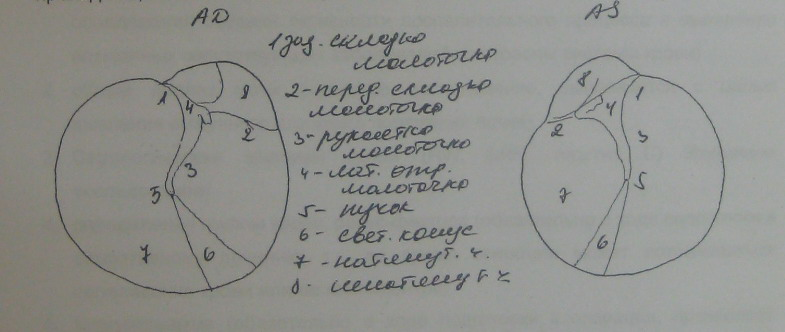 AD
AS
1 зад. складка
молоточка
2- перед. складка
молоточка
3- рукоятка
молоточка
4- лат. отр.
молоточка
5- пупок
6- свет. конус
7- натянут. ч.
8- ненатянут ч
1
4
8
2
3
5
7
6
8
4
1
2
3
7
5
6